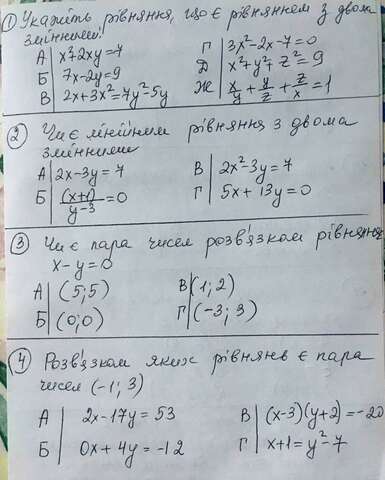 1 Укажіть рівняння, що є рівнянням з двома
змінними:
А x²+2xy=7
Б 7x-2y=9
В 2x+3x²=7y²-5y
Г 3x²-2x-7=0
Д x²+y²+z²=9
Ж x/y + y/z + z/x = 1
2 Чи є лінійним рівняння з двома
змінними
А 2x-3y=7
Б (x+1)/(y-3) =0
В 2x²-3y=7
Г 5x+13y=0
3 Чи є пара чисел розв'язком рівняння
x-y=0
А (5;5)
Б (0;0)
В (1;2)
Г (-3;3)
4 Розв'язком яких рівнянь є пара
чисел (-1;3)
А 2x-17y=53
Б 0x+4y=-12
В (x-3)(y+2)=-20
Г x+1=y²-7